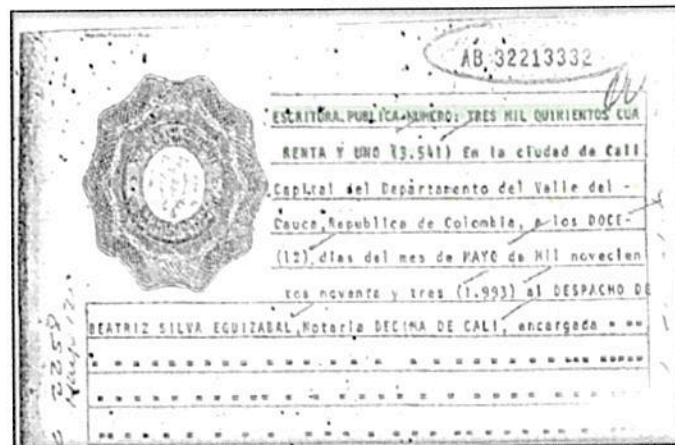 AB 32213332
ESCRITURA PUBLICA NUMERO: TRES MIL QUINIENTOS CUA
RENTA Y UNO (3.541) En la ciudad de Cali
Capital del Departamento del Valle del -
Cauca, Republica de Colombia, a los DOCE-
(12) días del mes de MAYO de Mil novecien
tos noventa y tres (1.993) al DESPACHO DE
BEATRIZ SILVA EGUIZABAL, Notaria DECIMA DE CALI, encargada
2258
Mayo 12